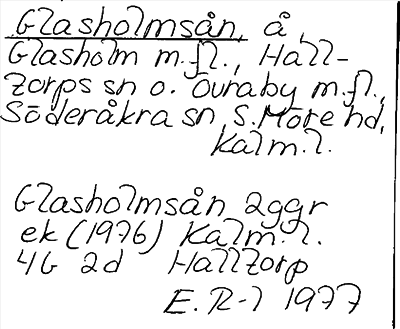 Glasholmsån, å,
Glasholm m.fl., Hall-
torps sn o. Ouraby m.fl.,
Söderåkra sn, S. Möre hd,
Kalm.l.
Glasholmsån 2ggr
ek (1976) Kalm.l.
4G 2d Halltorp
E.R-l 1977